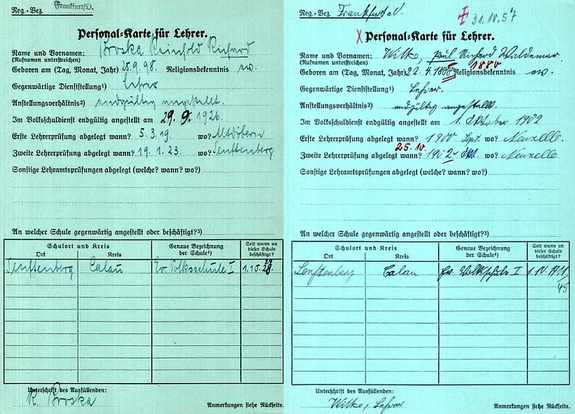 Reg.-Bez. Frankfurt/O.
Personal-Karte für Lehrer.
Name und Vornamen: Broska Reinhold Richard
(Rufnamen unterstreichen)
Geboren am (Tag, Monat, Jahr) 25.9.98. Religionsbekenntnis ev.
Gegenwärtige Dienststellung¹) Lehrer
Anstellungsverhältnis²) endgültig angestellt.
Im Volksschuldienst endgültig angestellt am 29. 9. 1926.
Erste Lehrerprüfung abgelegt wann? 5.3.19. wo? Altdöbern
Zweite Lehrerprüfung abgelegt wann? 19.1.23. wo? Senftenberg
Sonstige Lehramtsprüfungen abgelegt (welche? wann? wo?)
An welcher Schule gegenwärtig angestellt oder beschäftigt?³)
Schulort und Kreis
Ort Kreis
Genaue Bezeichnung der Schule⁴)
Seit wann an dieser Schule beschäftigt?
Senftenberg Calau Ev. Volksschule I 1.10.28.
Unterschrift des Ausfüllenden:
R. Broska
Anmerkungen siehe Rückseite.
Reg.-Bez. Frankfurt a.O.
31.10.57
Personal-Karte für Lehrer.
Name und Vornamen: Wilke, Paul Richard Waldemar
(Rufnamen unterstreichen)
1880
Geboren am (Tag, Monat, Jahr) 22.4. Religionsbekenntnis ev.
Gegenwärtige Dienststellung¹) Lehrer
Anstellungsverhältnis²) endgültig angestellt
Im Volksschuldienst endgültig angestellt am 1. Oktober 1902
Erste Lehrerprüfung abgelegt wann? 1900 Sept. wo? Neuzelle
25.10.
Zweite Lehrerprüfung abgelegt wann? 1902 wo? Neuzelle
Sonstige Lehramtsprüfungen abgelegt (welche? wann? wo?)
An welcher Schule gegenwärtig angestellt oder beschäftigt?³)
Schulort und Kreis
Ort Kreis
Genaue Bezeichnung der Schule⁴)
Seit wann an dieser Schule beschäftigt?
Senftenberg Calau Ev. Volksschule I
45
Unterschrift des Ausfüllenden:
Wilke, Lehrer
Anmerkungen siehe Rückseite.